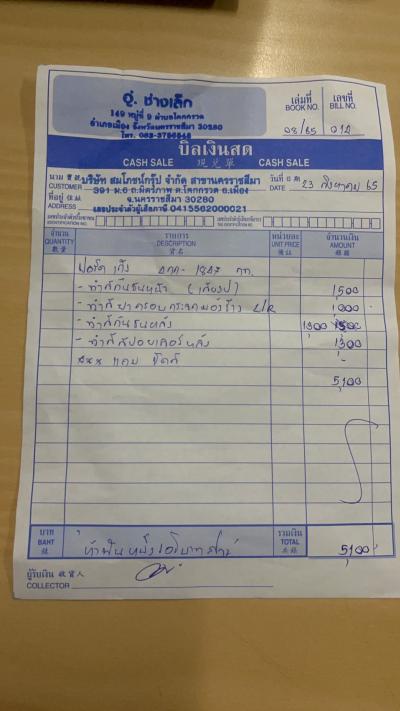 อู่ ช่างเล็ก
149 หมู่ที่ 9 ตำบลโคกกรวด
อำเภอเมือง จังหวัดนครราชสีมา 30280
โทร.
เล่มที่ เลขที่
BOOK NO. BILL NO.
08/65 012
บิลเงินสด
CASH SALE 現兑單 CASH SALE
นาม บริษัท สมโภชน์กรุ๊ป จำกัด สาขานครราชสีมา
CUSTOMER 391 ม.6 ถ.มิตรภาพ ต.โคกกรวด อ.เมือง
ที่อยู่ จ.นครราชสีมา 30280
ADDRESS เลขประจำตัวผู้เสียภาษี 0415562000021
วันที่
DATE 23 สิงหาคม 65
จำนวน รายการ หน่วยละ จำนวนเงิน
QUANTITY DESCRIPTION UNIT PRICE AMOUNT
數量 貨名
ฟอร์ด เก๋ง 1847 กท.
- ทำสีกันชนหน้า 1500
- ทำสีฝาครอบกระจกมองข้าง L/R 1000
- ทำสีกันชนหลัง 1300
- ทำสีสปอยเลอร์หลัง 1300
*** แถม ขัดสี -
5,100
บาท รวมเงิน
BAHT TOTAL
ห้าพันหนึ่งร้อยบาทถ้วน 5,100
ผู้รับเงิน 收貨人
COLLECTOR